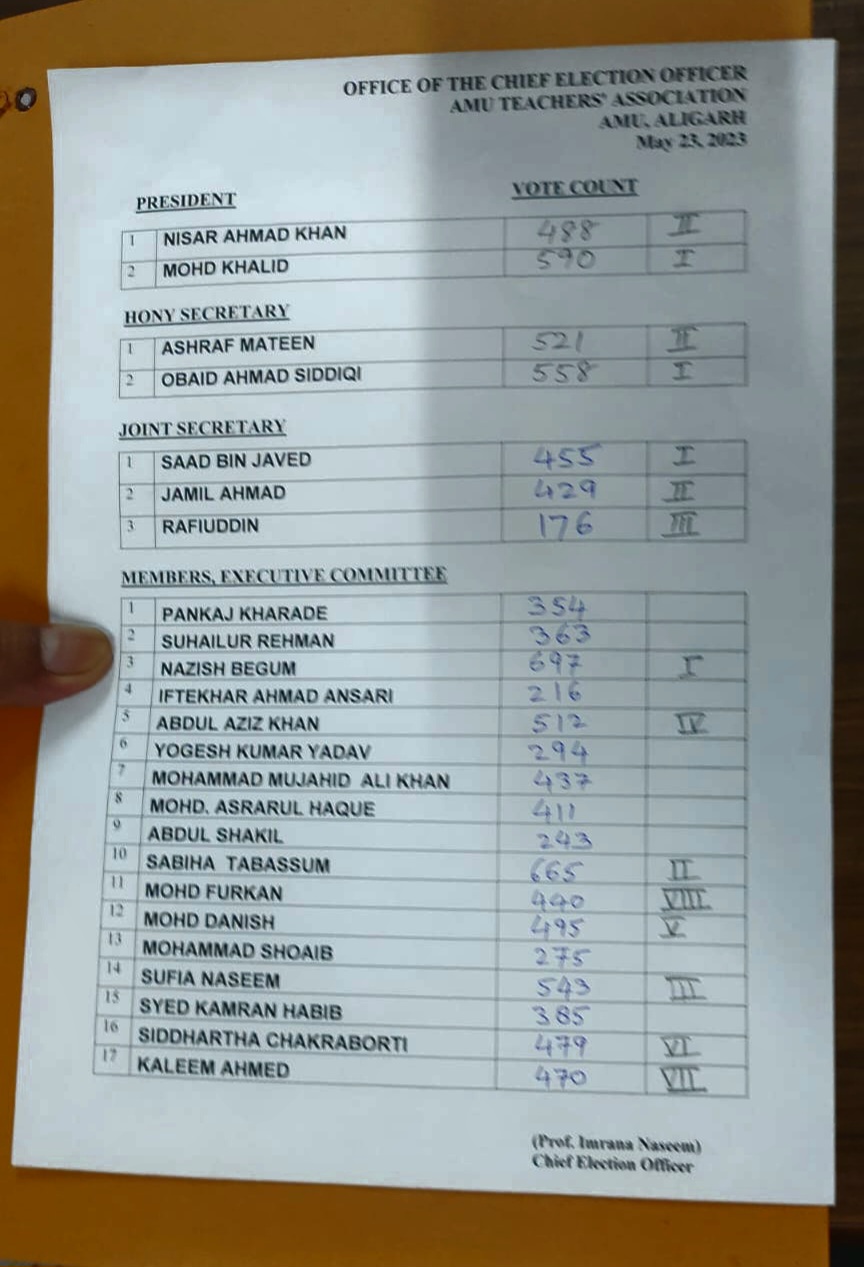 OFFICE OF THE CHIEF ELECTION OFFICER
AMU TEACHERS' ASSOCIATION
AMU, ALIGARH
May 23, 2023
PRESIDENT VOTE COUNT
1 NISAR AHMAD KHAN 488 II
2 MOHD KHALID 590 I
HONY SECRETARY
1 ASHRAF MATEEN 521 II
2 OBAID AHMAD SIDDIQI 558 I
JOINT SECRETARY
1 SAAD BIN JAVED 455 I
2 JAMIL AHMAD 429 II
3 RAFIUDDIN 176 III
MEMBERS, EXECUTIVE COMMITTEE
1 PANKAJ KHARADE 354
2 SUHAILUR REHMAN 363
3 NAZISH BEGUM 697 I
4 IFTEKHAR AHMAD ANSARI 216
5 ABDUL AZIZ KHAN 512 IV
6 YOGESH KUMAR YADAV 294
7 MOHAMMAD MUJAHID ALI KHAN 437
8 MOHD. ASRARUL HAQUE 411
9 ABDUL SHAKIL 243
10 SABIHA TABASSUM 665 II
11 MOHD FURKAN 440 VIII
12 MOHD DANISH 495 V
13 MOHAMMAD SHOAIB 275
14 SUFIA NASEEM 543 III
15 SYED KAMRAN HABIB 385
16 SIDDHARTHA CHAKRABORTI 479 VI
17 KALEEM AHMED 470 VII
(Prof. Imrana Naseem)
Chief Election Officer